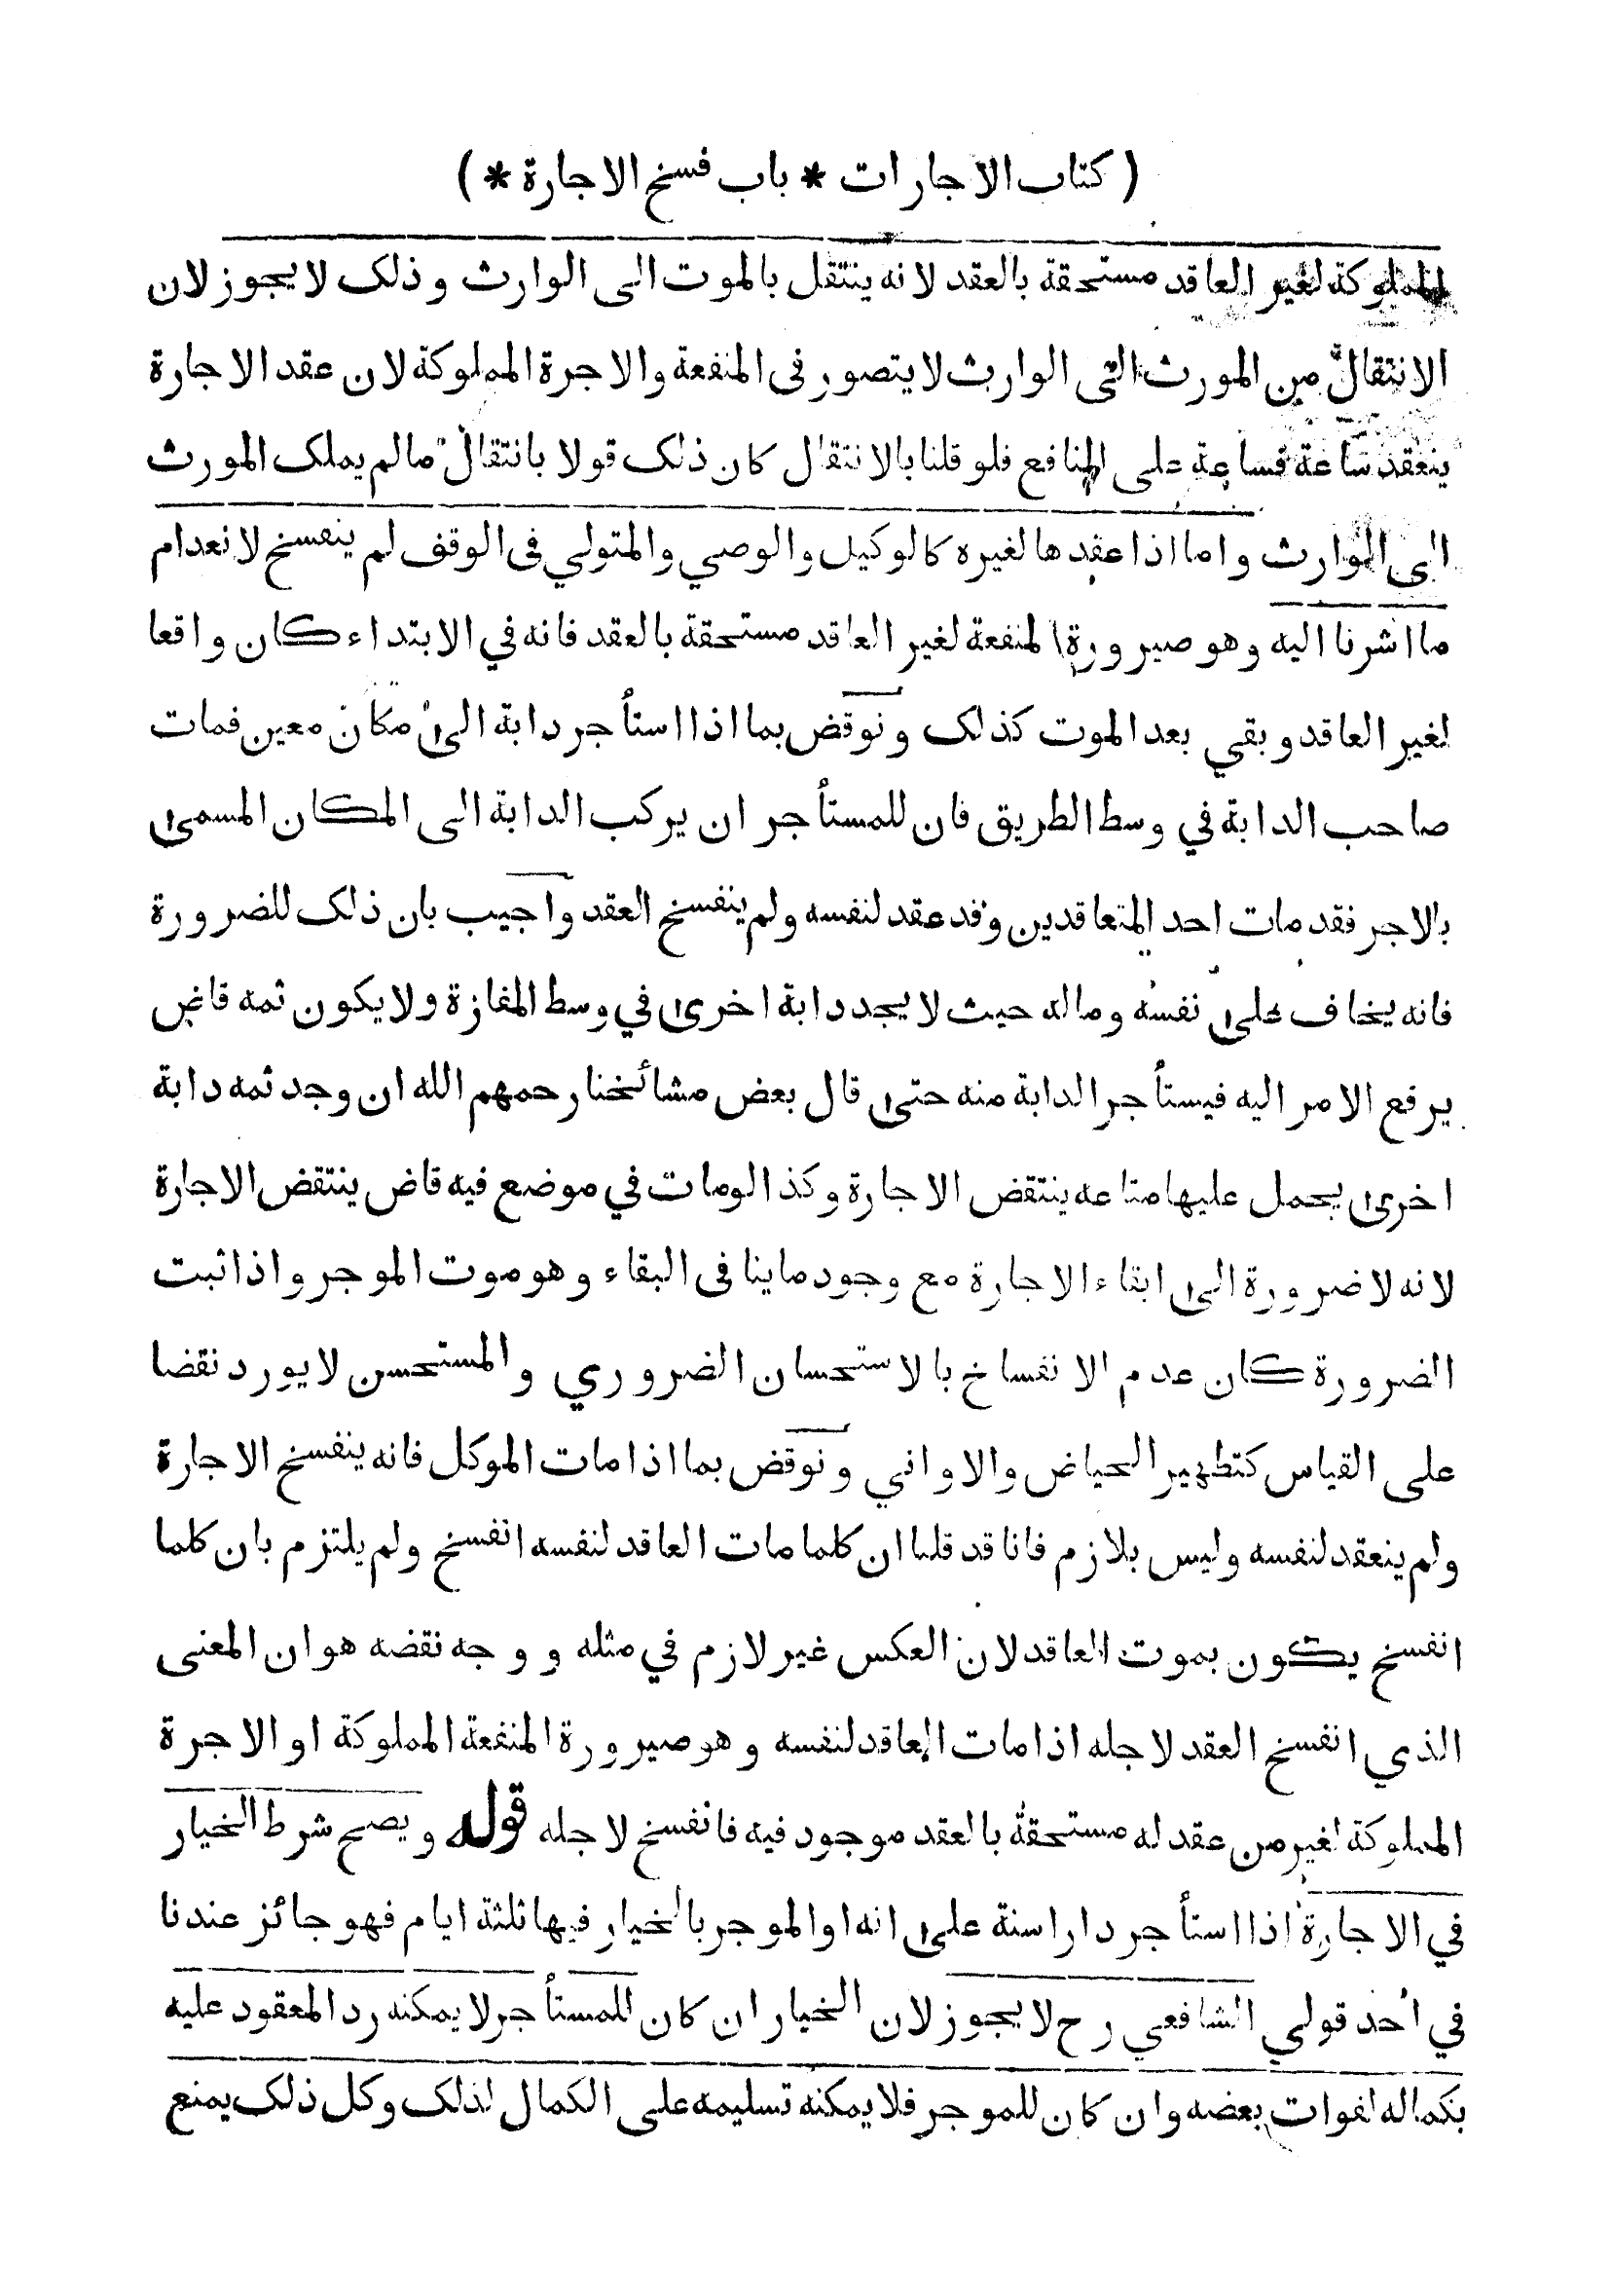 ( كتاب الاجارات * باب فسخ الاجارة * )
المملوكة لغير العاقد مستحقة بالعقد لانه ينتقل بالموت الى الوارث وذلك لا يجوز لان
الانتقال من المورث الى الوارث لا يتصور فى المنفعة والاجرة المملوكة لان عقد الاجارة
ينعقد ساعة فساعة على المنافع فلو قلنا بالانتقال كان ذلك قولا بانتقال ما لم يملك المورث
الى الوارث واما اذا عقدها لغيره كالوكيل والوصي والمتولي فى الوقف لم ينفسخ لانعدام
ما اشرنا اليه وهو صيرورة المنفعة لغير العاقد مستحقة بالعقد فانه في الابتداء كان واقعا
لغير العاقد وبقي بعد الموت كذلك ونوقض بما اذا استأجر دابة الى مكان معين فمات
صاحب الدابة في وسط الطريق فان للمستأجر ان يركب الدابة الى المكان المسمى
بالاجر فقد مات احد المتعاقدين وقد عقد لنفسه ولم ينفسخ العقد واجيب بان ذلك للضرورة
فانه يخاف على نفسه وماله حيث لا يجد دابة اخرى في وسط المفازة ولا يكون ثمه قاض
يرفع الامر اليه فيستأجر الدابة منه حتى قال بعض مشائخنا رحمهم الله ان وجد ثمه دابة
اخرى يحمل عليها متاعه ينتقض الاجارة وكذا لو مات في موضع فيه قاض ينتقض الاجارة
لانه لا ضرورة الى ابقاء الاجارة مع وجود ما ينافى البقاء وهو موت الموجر واذا ثبت
الضرورة كان عدم الانفساخ بالاستحسان الضروري والمستحسن لا يورد نقضا
على القياس كتطهير الحياض والاواني ونوقض بما اذا مات الموكل فانه ينفسخ الاجارة
ولم ينعقد لنفسه وليس بلازم فانا قد قلنا ان كلما مات العاقد لنفسه انفسخ ولم يلتزم بان كلما
انفسخ يكون بموت العاقد لان العكس غير لازم في مثله ووجه نقضه هو ان المعنى
الذي انفسخ العقد لاجله اذا مات العاقد لنفسه وهو صيرورة المنفعة المملوكة او الاجرة
المملوكة لغير من عقد له مستحقة بالعقد موجود فيه فانفسخ لاجله قوله ويصح شرط الخيار
في الاجارة اذا استأجر دارا سنة على انه او الموجر بالخيار فيها ثلثة ايام فهو جائز عندنا
في أحد قولي الشافعي رح لا يجوز لان الخيار ان كان للمستأجر لا يمكنه رد المعقود عليه
بكماله لفوات بعضه وان كان للموجر فلا يمكنه تسليمه على الكمال لذلك وكل ذلك يمنع